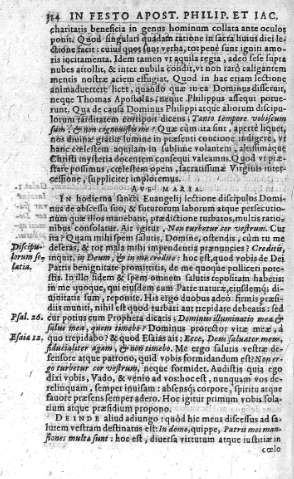 314 IN FESTO APOST. PHILIP. ET IAC.
charitatis beneficia in genus hominum collata ante oculos
poni? Quod singulari quadam ratione in sacra huius diei le-
ctione facit: cuius quot sunt verba, tot pene sunt igniti amo-
ris incitamenta. Idem tamen vt aquila regia, adeo sese supra
nubes attollit, & inter nubila condit, vt non raro caligantem
mentis nostræ aciem effugiat. Quod in hac etiam lectione
animaduertere licet, quando quæ in ea Dominus disseruit,
neque Thomas Apostolus, neque Philippus assequi potue-
runt. Qua de causa Dominus Philippi atque aliorum discipu-
lorum tarditatem corripit dicens: Tanto tempore vobiscum
sum, & non cognouistis me? Quæ cum ita sint, aperte liquet,
nos diuinæ gratiæ lumine in præsenti concione indigere, vt
hanc cœlestem aquilam in sublime volantem, altissimaque
Christi mysteria docentem consequi valeamus. Quod vt præ-
stare possimus, cœlestem opem, sacratissimæ Virginis inter-
cessione, suppliciter imploremus.
AVE MARIA.
IN hodierna sancti Euangelij lectione discipulos Domi-
nus de abscessu suo, & futurorum laborum atque persecutio-
num quæ illos manebant, prædictione turbatos, multis ratio-
nibus consolatur. Ait igitur, Non turbetur cor vestrum. Cur
ita? Quam mihi spem salutis, Domine, ostendis, cùm tu me
deseras, & tot mala mihi impendentia prænuncies? Creditis,
Discipu-
lorum so-
latia.
inquit, in Deum, & in me credite: hoc est, quod vobis de Dei
Patris benignitate promittitis, de me quoque polliceri pote-
stis. In illo fidem & spem omnem salutis copiosam habetis:
in me quoque, qui eiusdem cum Patre naturæ, eiusdemq; di-
uinitatis sum, reponite. His ergo duobus adeo firmis præsi-
dijs muniti, nihil est quod turbari aut trepidare debeatis: sed
Psal. 26.
est potius cum Propheta dicatis: Dominus illuminatio mea &
salus mea, quem timebo? Dominus protector vitæ meæ, à
Esaia 12.
quo trepidabo? & quod Esaias ait: Ecce, Deus saluator meus,
fiducialiter agam, & non timebo. Me ergo salutis vestræ de-
fensore atque patrono, quid vobis formidandum est? Non er-
go turbetur cor vestrum, neque formidet. Audistis quia ego
dixi vobis, Vado, & venio ad vos: hoc est, nunquam vos de-
relinquam, semper inuisam: absensq; corpore, spiritu atque
fauore præsens semper adero. Hoc igitur primum vobis sola-
tium atque præsidium propono.
DEINDE aliud adiungo: quòd hic meus discessus ad sa-
lutem vestram destinatus est: In domo, quippe, Patris mei man-
siones multæ sunt: hoc est, diuersa virtutum atque iustitiæ in
cœlo